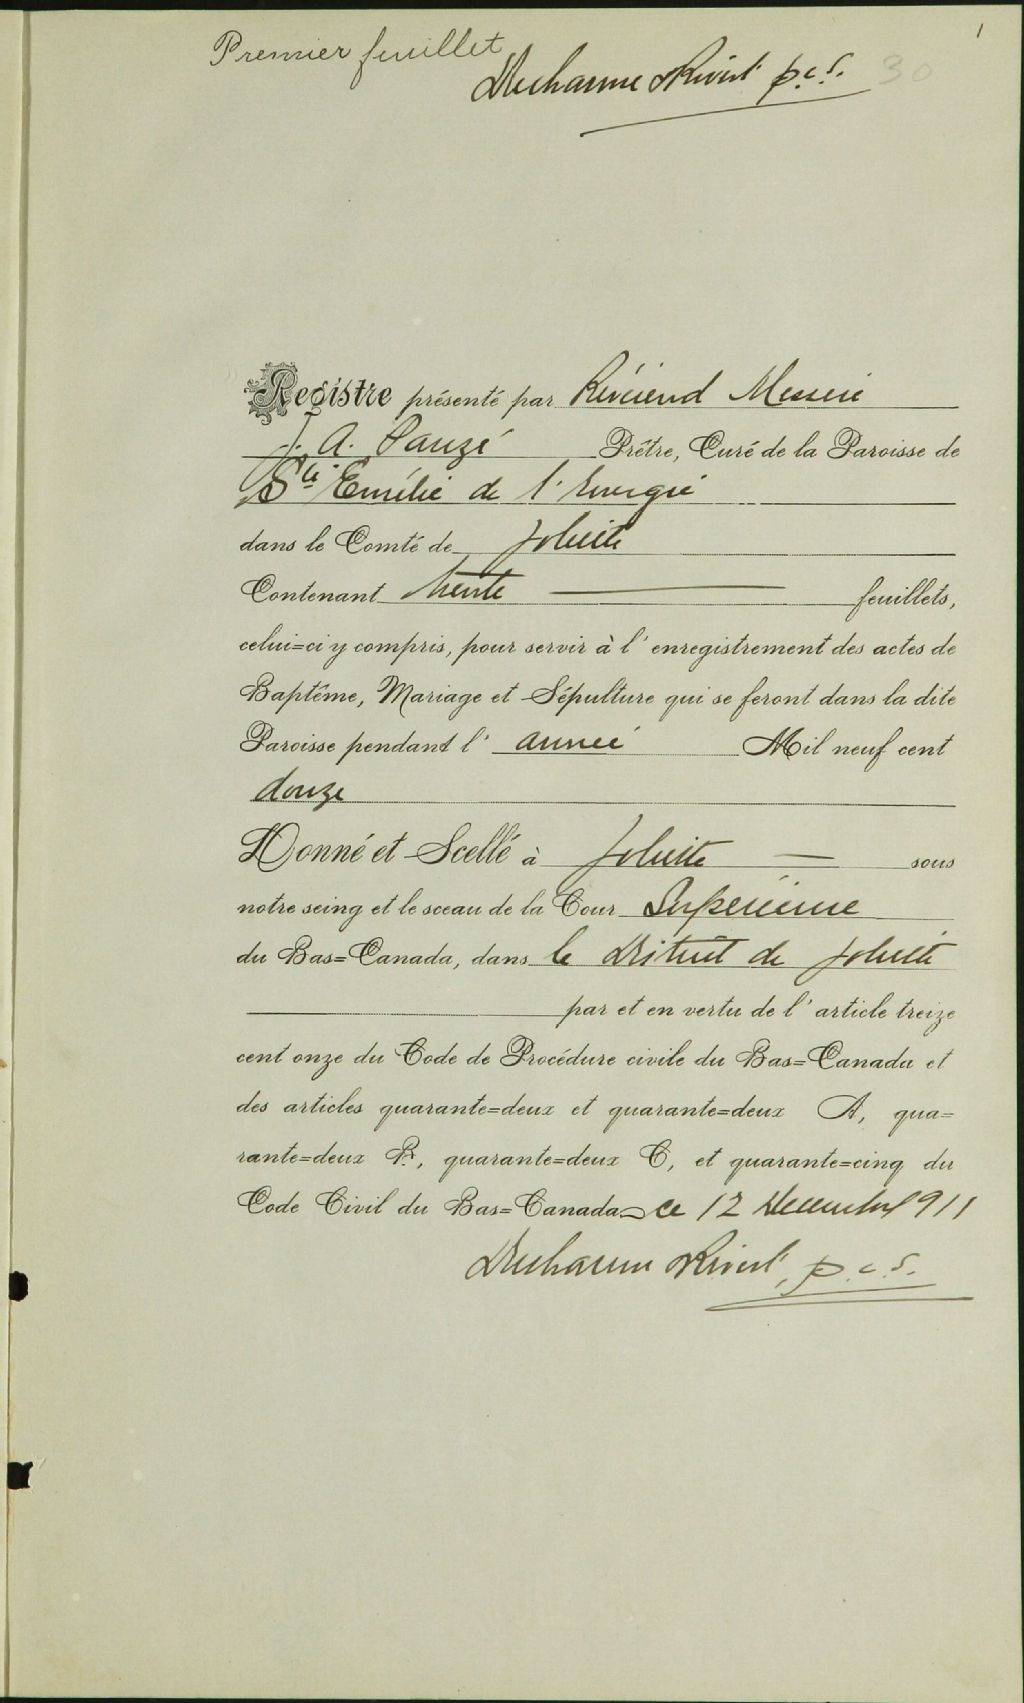 1
Premier feuillet
Ducharme & Rivest p.c.s. 30
Registre présenté par Révérend Messire
J. A. Pauzé Prêtre, Curé de la Paroisse de
Ste Emélie de l'Energie
dans le Comté de Joliette
Contenant trente feuillets,
celui=ci y compris, pour servir à l'enregistrement des actes de
Baptême, Mariage et Sépulture qui se feront dans la dite
Paroisse pendant l'année Mil neuf cent
douze
Donné et Scellé à Joliette — sous
notre seing et le sceau de la Cour Supérieure
du Bas=Canada, dans le District de Joliette
par et en vertu de l'article treize
cent onze du Code de Procédure civile du Bas=Canada et
des articles quarante=deux et quarante=deux A, qua=
rante=deux B, quarante=deux C, et quarante=cinq du
Code Civil du Bas=Canada ce 12 Decembre 1911
Ducharme & Rivest, p.c.s.